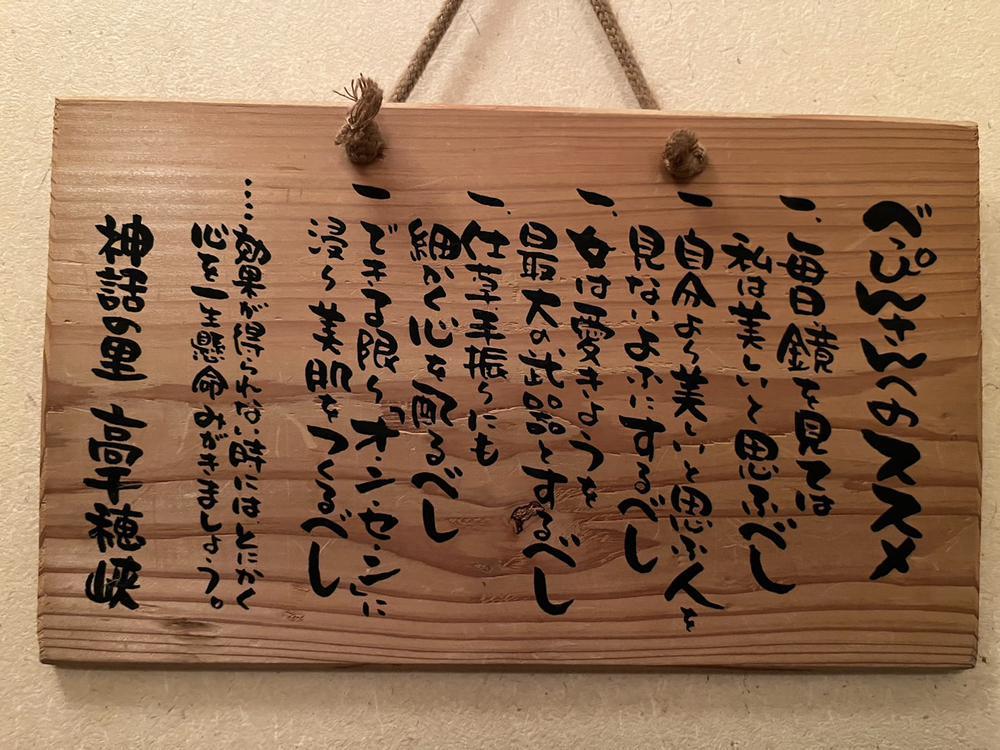 べっぴんさんのススメ
一、毎日鏡を見ては
私は美しいと思ふべし
一 自分より美しいと思ふ人を
見ないよふにするべし
一、女は愛きょうを
最大の武器とするべし
一、仕草手振りにも
細かく心を配るべし
一 できる限り「オンセン」に
浸り美肌をつくるべし
……効果が得られない時にはとにかく
心を一生懸命みがきましょう。
神話の里 高千穂峡